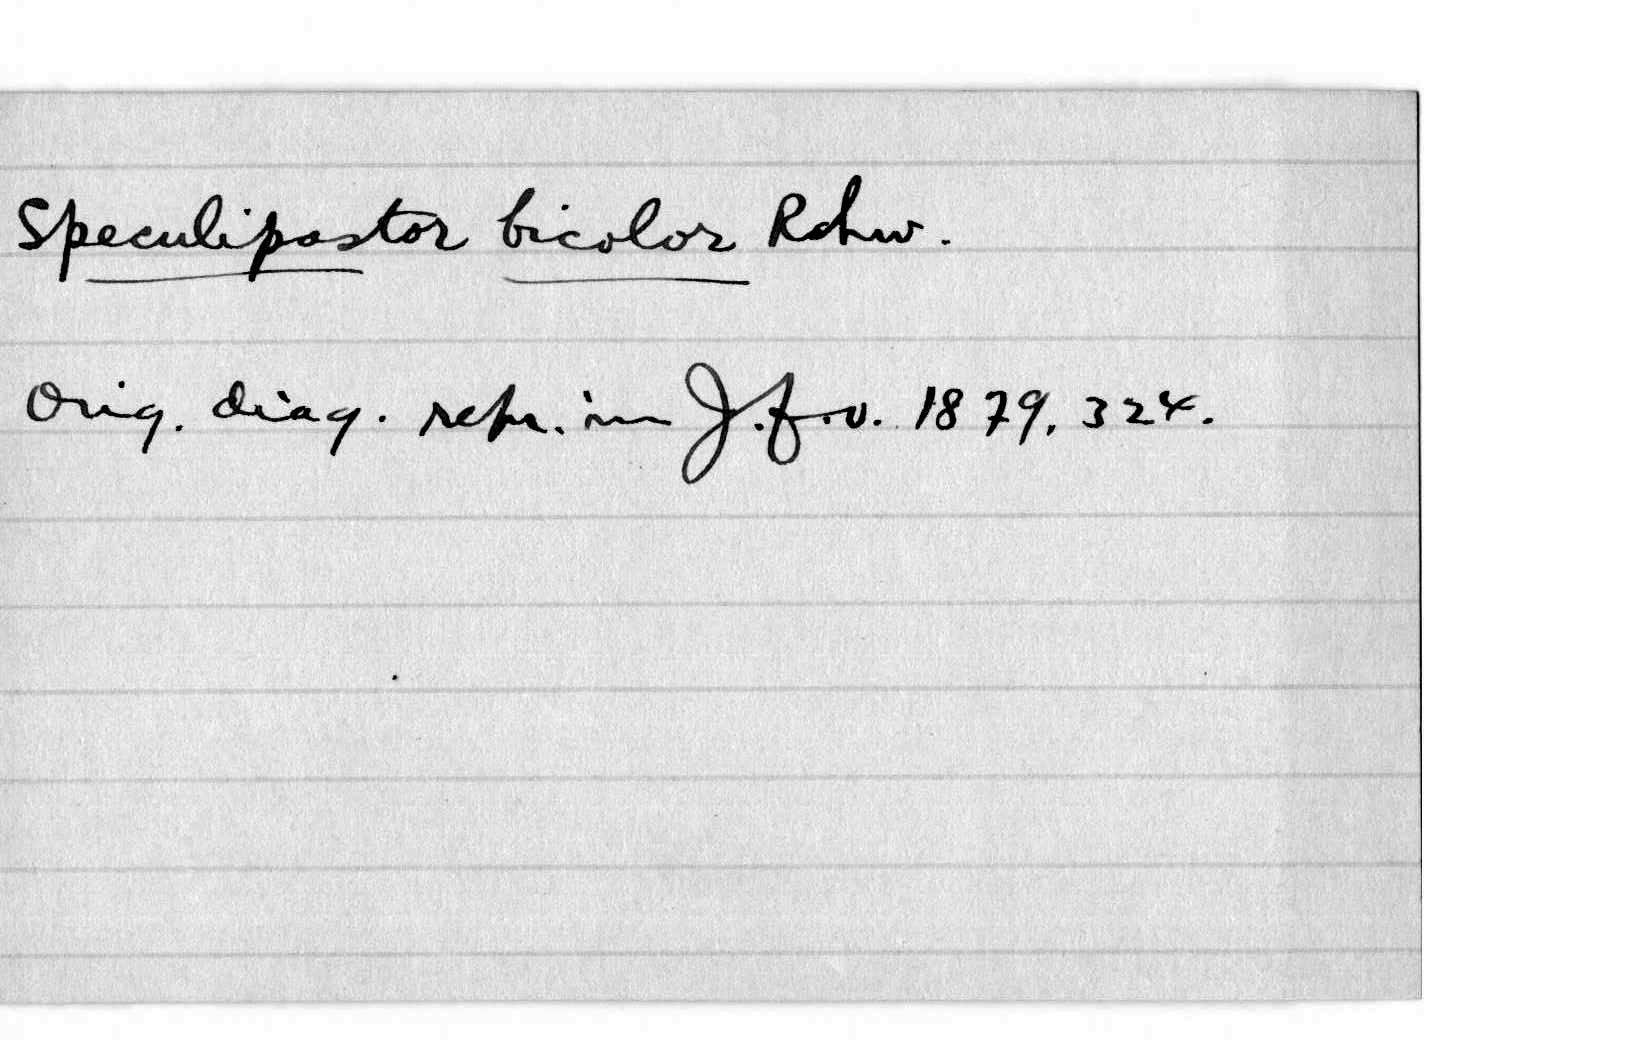 Speculipastor bicolor Rchw.
Orig. diag. repr. in J.f.O. 1879, 324.